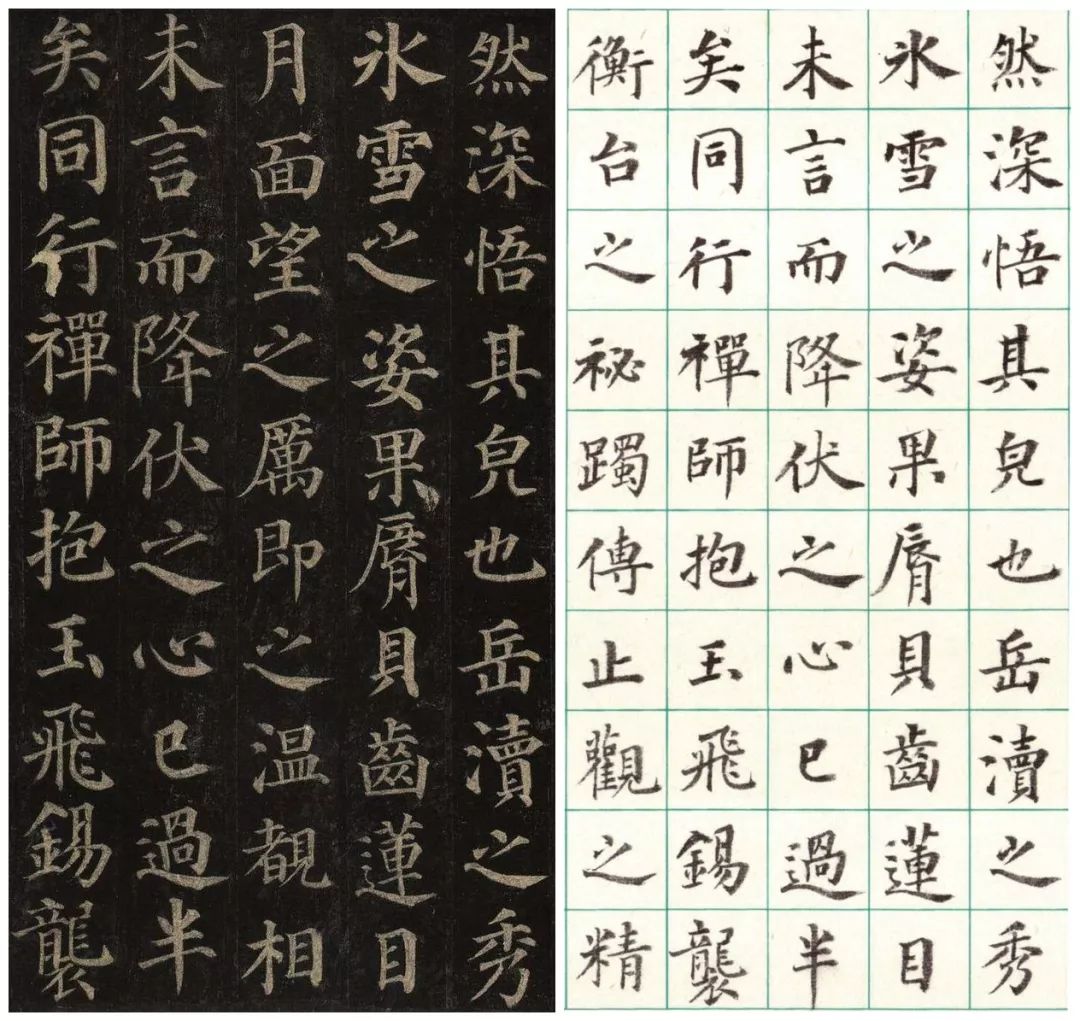 然深悟其皃也岳瀆之秀
氷雪之姿果脣貝齒蓮目
月面望之厲即之温覩相
未言而降伏之心已過半
矣同行禪師抱玉飛錫襲
然深悟其皃也岳瀆之秀
氷雪之姿果脣貝齒蓮目
未言而降伏之心已過半
矣同行禪師抱玉飛錫襲
衡台之祕躅傳止觀之精